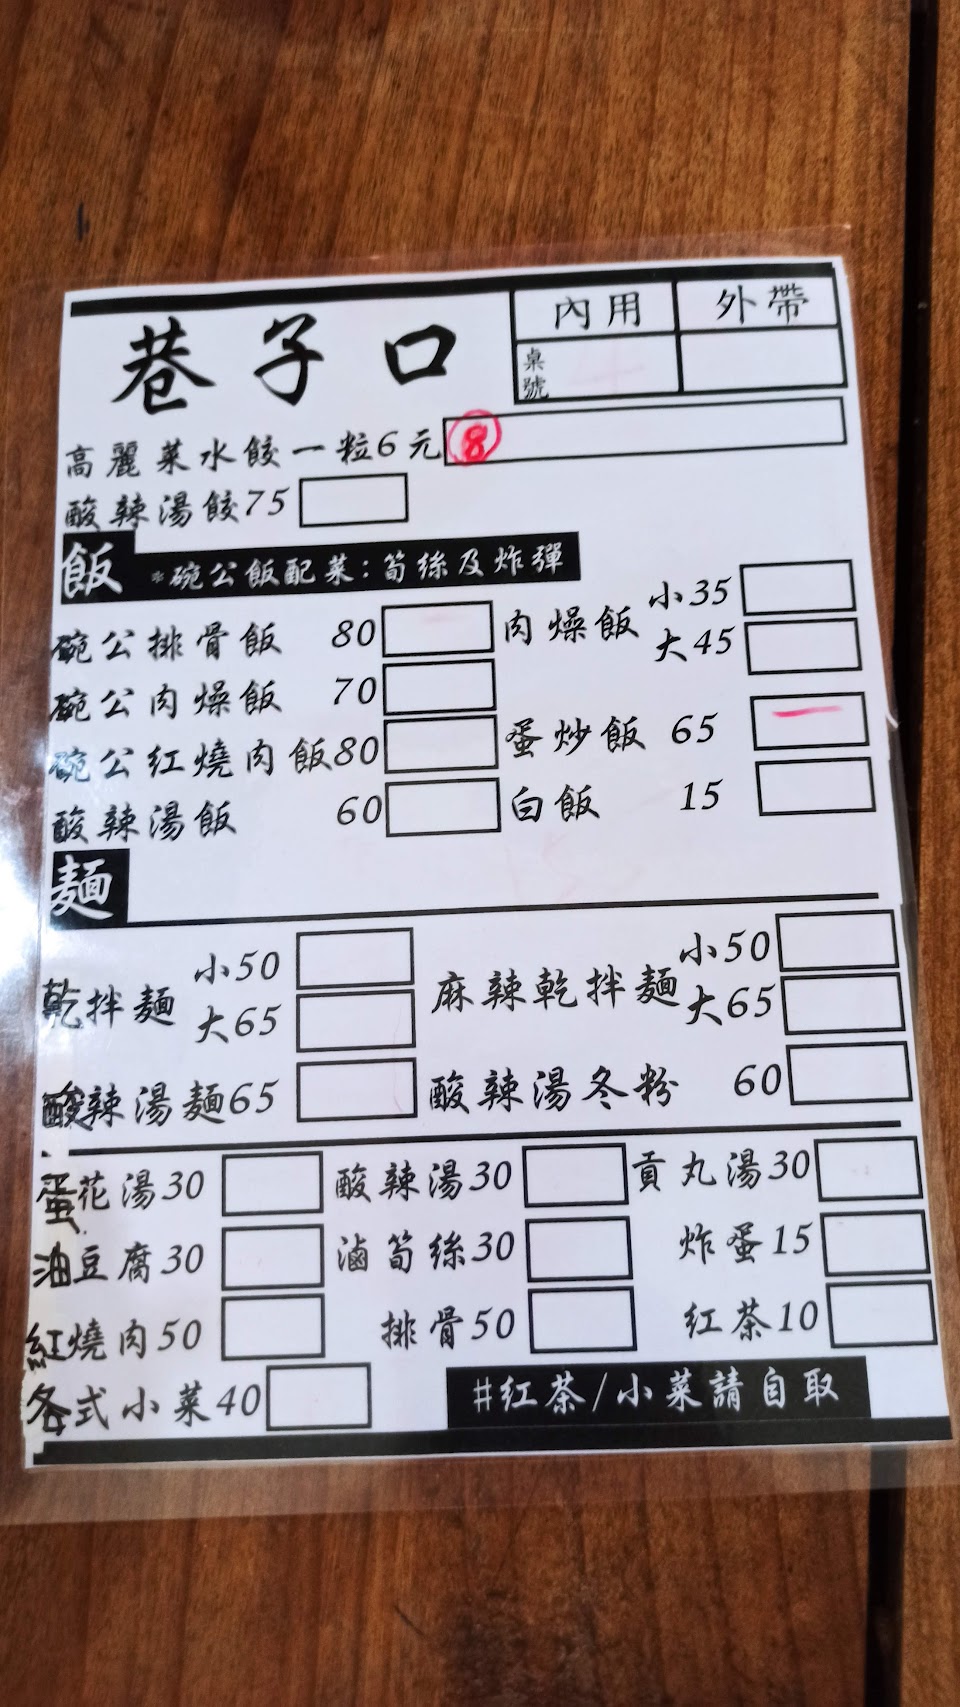 巷子口
內用 外帶
桌號
高麗菜水餃一粒6元 8
酸辣湯餃75
飯 *碗公飯配菜:筍絲及炸彈
碗公排骨飯 80
肉燥飯 小35
大45
碗公肉燥飯 70
碗公紅燒肉飯80
蛋炒飯 65 一
酸辣湯飯 60
白飯 15
麵
乾拌麵 小50
大65
麻辣乾拌麵 小50
大65
酸辣湯麵65
酸辣湯冬粉 60
蛋花湯30 酸辣湯30 貢丸湯30
油豆腐30 滷筍絲30 炸蛋15
紅燒肉50 排骨50 紅茶10
各式小菜40
#紅茶/小菜請自取